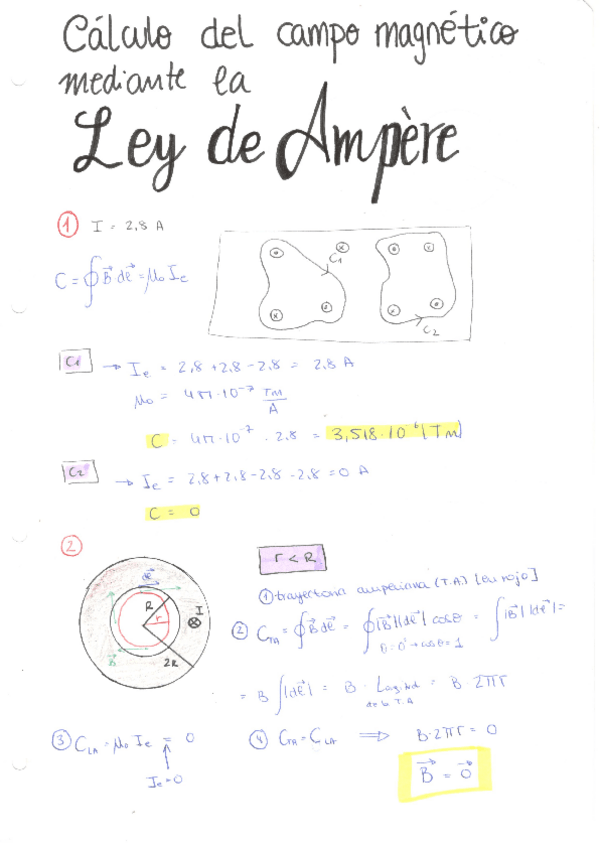 Cálculo del campo magnético
mediante la
Ley de Ampère
① I = 2,8 A
C = ∮ B⃗ dl⃗ = μ₀ Iₑ
C1
C2
C1 → Iₑ = 2,8 + 2,8 - 2,8 = 2,8 A
μ₀ = 4π·10⁻⁷ Tm/A
C = 4π·10⁻⁷ · 2,8 = 3,518·10⁻⁶ [Tm]
C2 → Iₑ = 2,8 + 2,8 - 2,8 - 2,8 = 0 A
C = 0
②
r < R
dl⃗
R
r
I
B⃗
2R
① trayectoria amperiana (T.A.) [en rojo]
② C_TA = ∮ B⃗ dl⃗ = ∮ |B⃗| |dl⃗| cosθ = ∫ |B⃗| |dl⃗| =
θ = 0° → cosθ = 1
= B ∫ |dl⃗| = B · Longitud = B · 2πr
de la T.A
③ C_LA = μ₀ Iₑ = 0
Iₑ = 0
④ C_TA = C_LA ⟹ B·2πr = 0
B⃗ = 0⃗